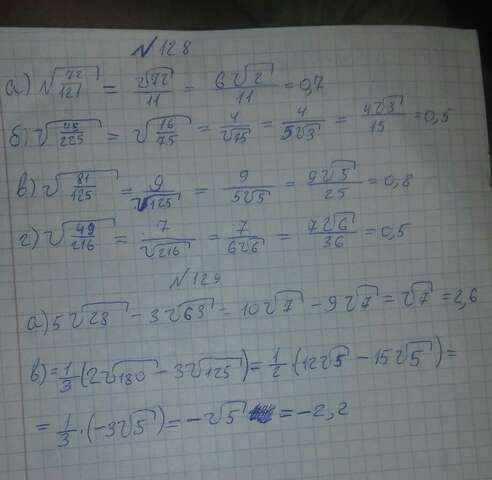 №128
а) √(72/121) = √72/11 = 6√2/11 = 0,7
б) √(48/225) = √(16/75) = 4/√75 = 4/5√3 = 4√3/15 = 0,5
в) √(81/125) = 9/√125 = 9/5√5 = 9√5/25 = 0,8
г) √(49/216) = 7/√216 = 7/6√6 = 7√6/36 = 0,5
№129
а) 5√28 - 3√63 = 10√7 - 9√7 = √7 = 2,6
в) = 1/3 (2√180 - 3√125) = 1/2 · (12√5 - 15√5) =
= 1/3 · (-3√5) = -√5 = -2,2